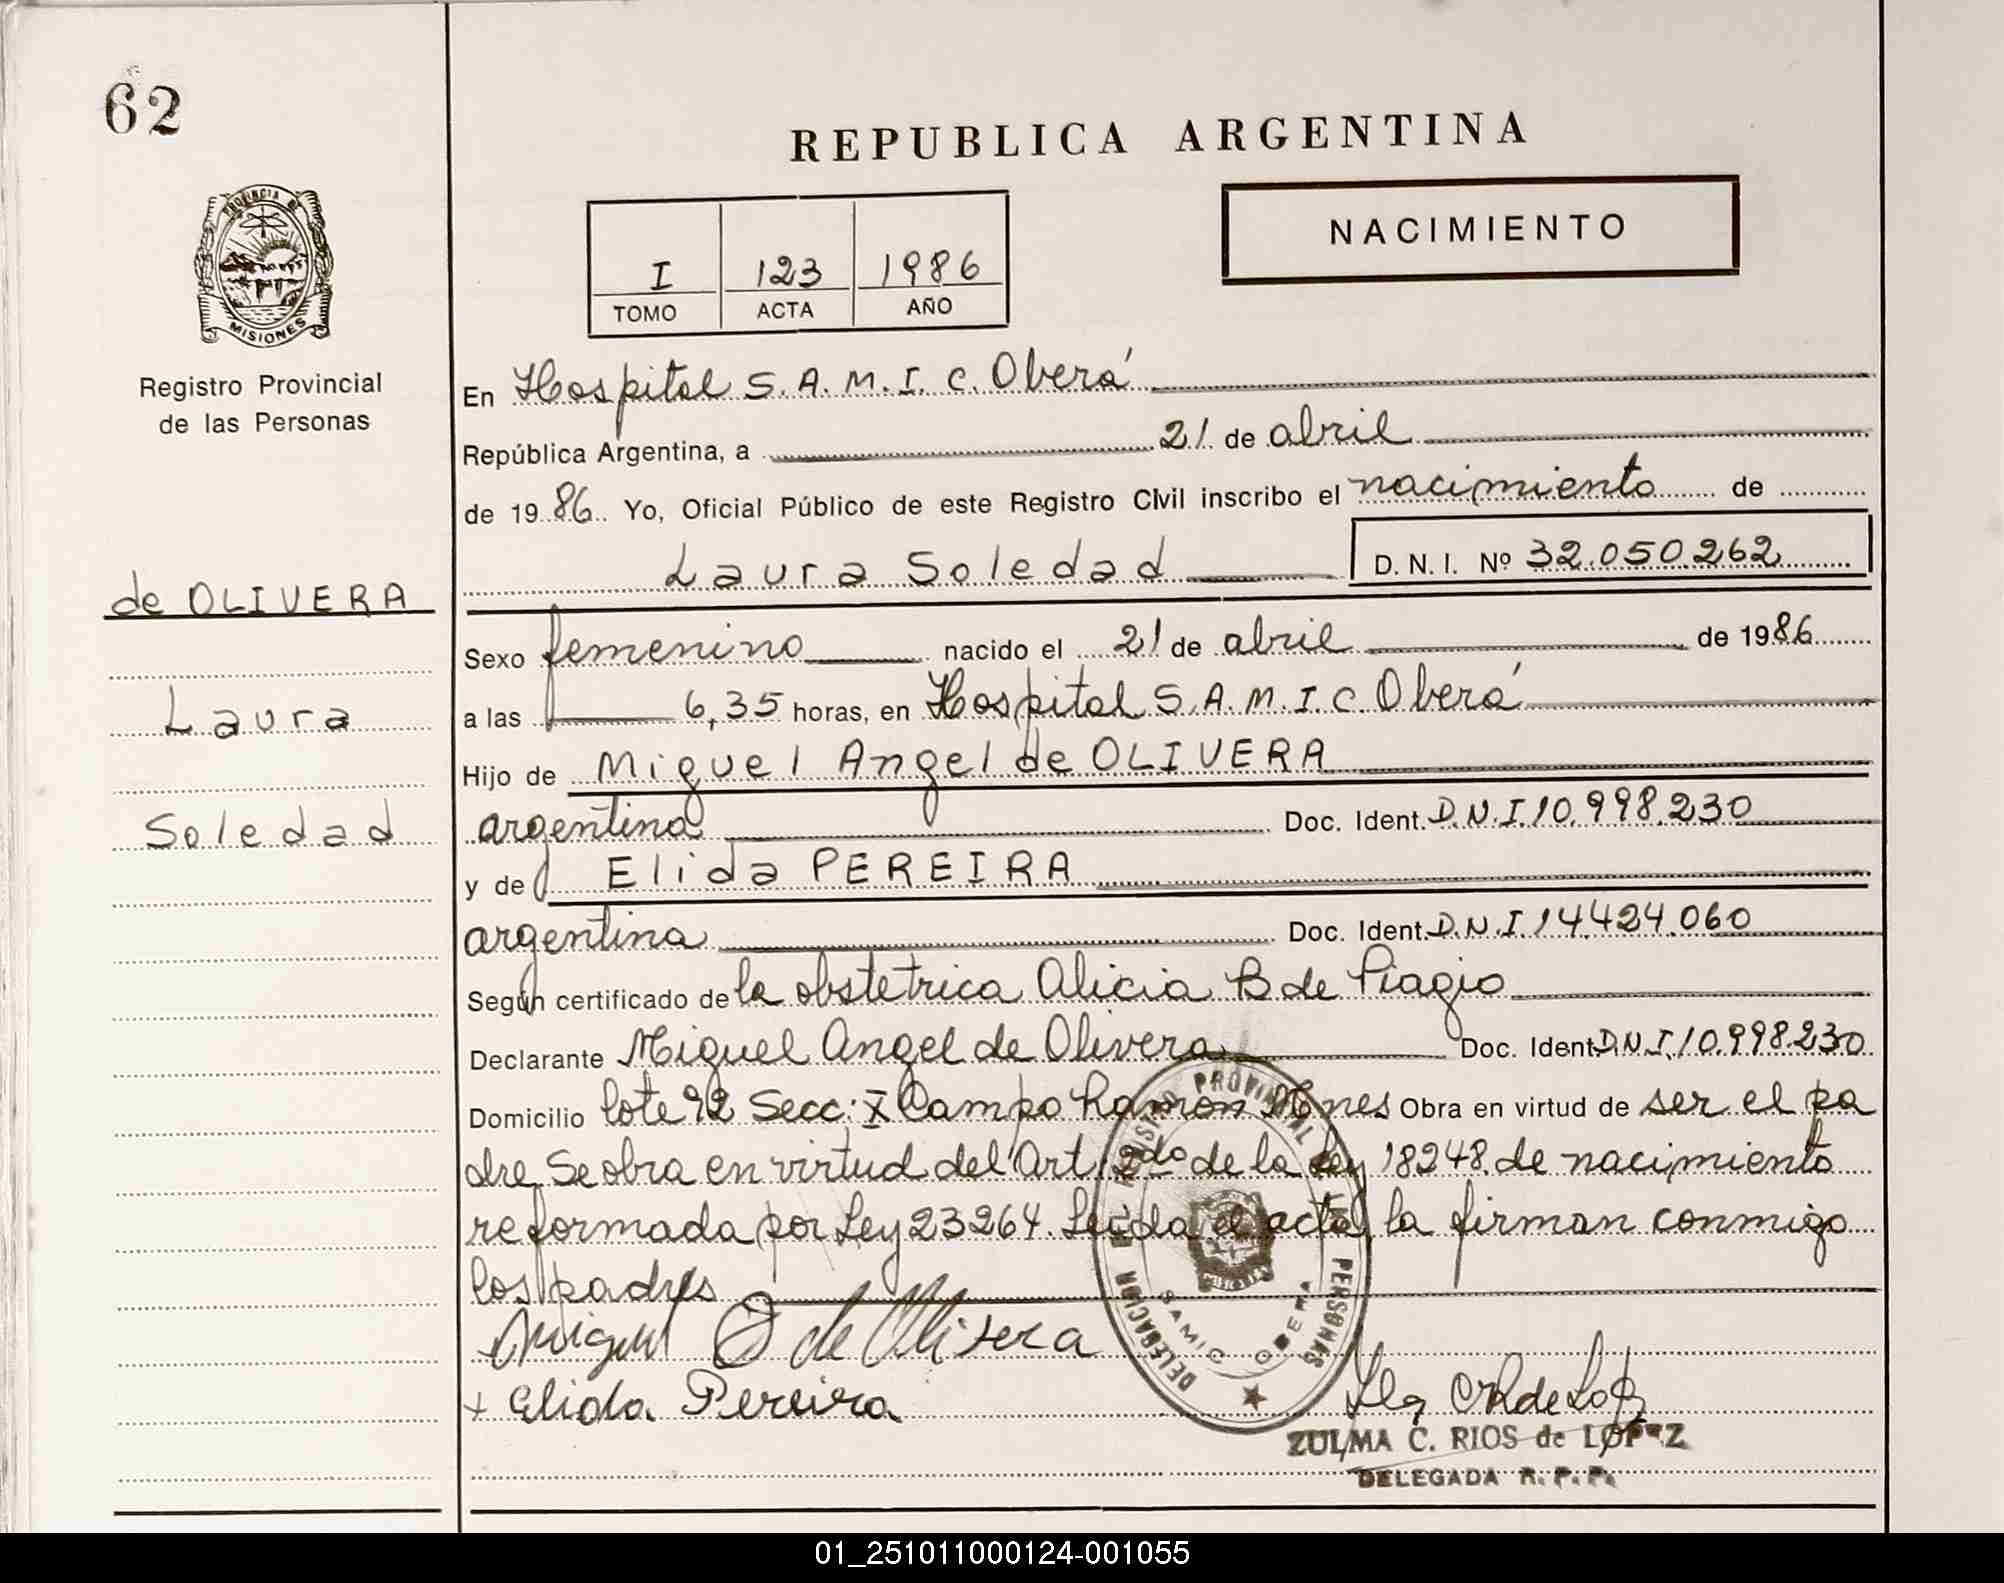 62
PROVINCIA DE
MISIONES
Registro Provincial
de las Personas
de OLIVERA
Laura
Soledad
REPUBLICA ARGENTINA
NACIMIENTO
I 123 1986
TOMO ACTA AÑO
En Hospital S.A.M.I.C. Oberá
República Argentina, a 21 de abril
de 1986 Yo, Oficial Público de este Registro Civil inscribo el nacimiento de
Laura Soledad D.N.I. Nº 32.050.262
Sexo femenino nacido el 21 de abril de 1986
a las 6,35 horas, en Hospital S.A.M.I.C Oberá
Hijo de Miguel Angel de OLIVERA
argentina Doc. Ident. D.N.I. 10.998.230
y de Elida PEREIRA
argentina Doc. Ident. D.N.I. 14.424.060
Según certificado de la obstetrica Alicia B de Piagio
Declarante Miguel Angel de Olivera Doc. Ident D.N.I. 10.998.230
Domicilio lote 92 Secc: X Campo Ramón Mnes Obra en virtud de ser el pa
dre Se obra en virtud del Art. 2do de la Ley 18248 de nacimiento
reformada por Ley 23264. Leida el acta, la firman conmigo
los padres
Miguel A de Olivera
+ Elida Pereira
DELEGACION REGISTRO PROVINCIAL DE PERSONAS
SAMIC OBERA
ZULMA C. RIOS de LOPEZ
DELEGADA R. P. P.
01_251011000124-001055